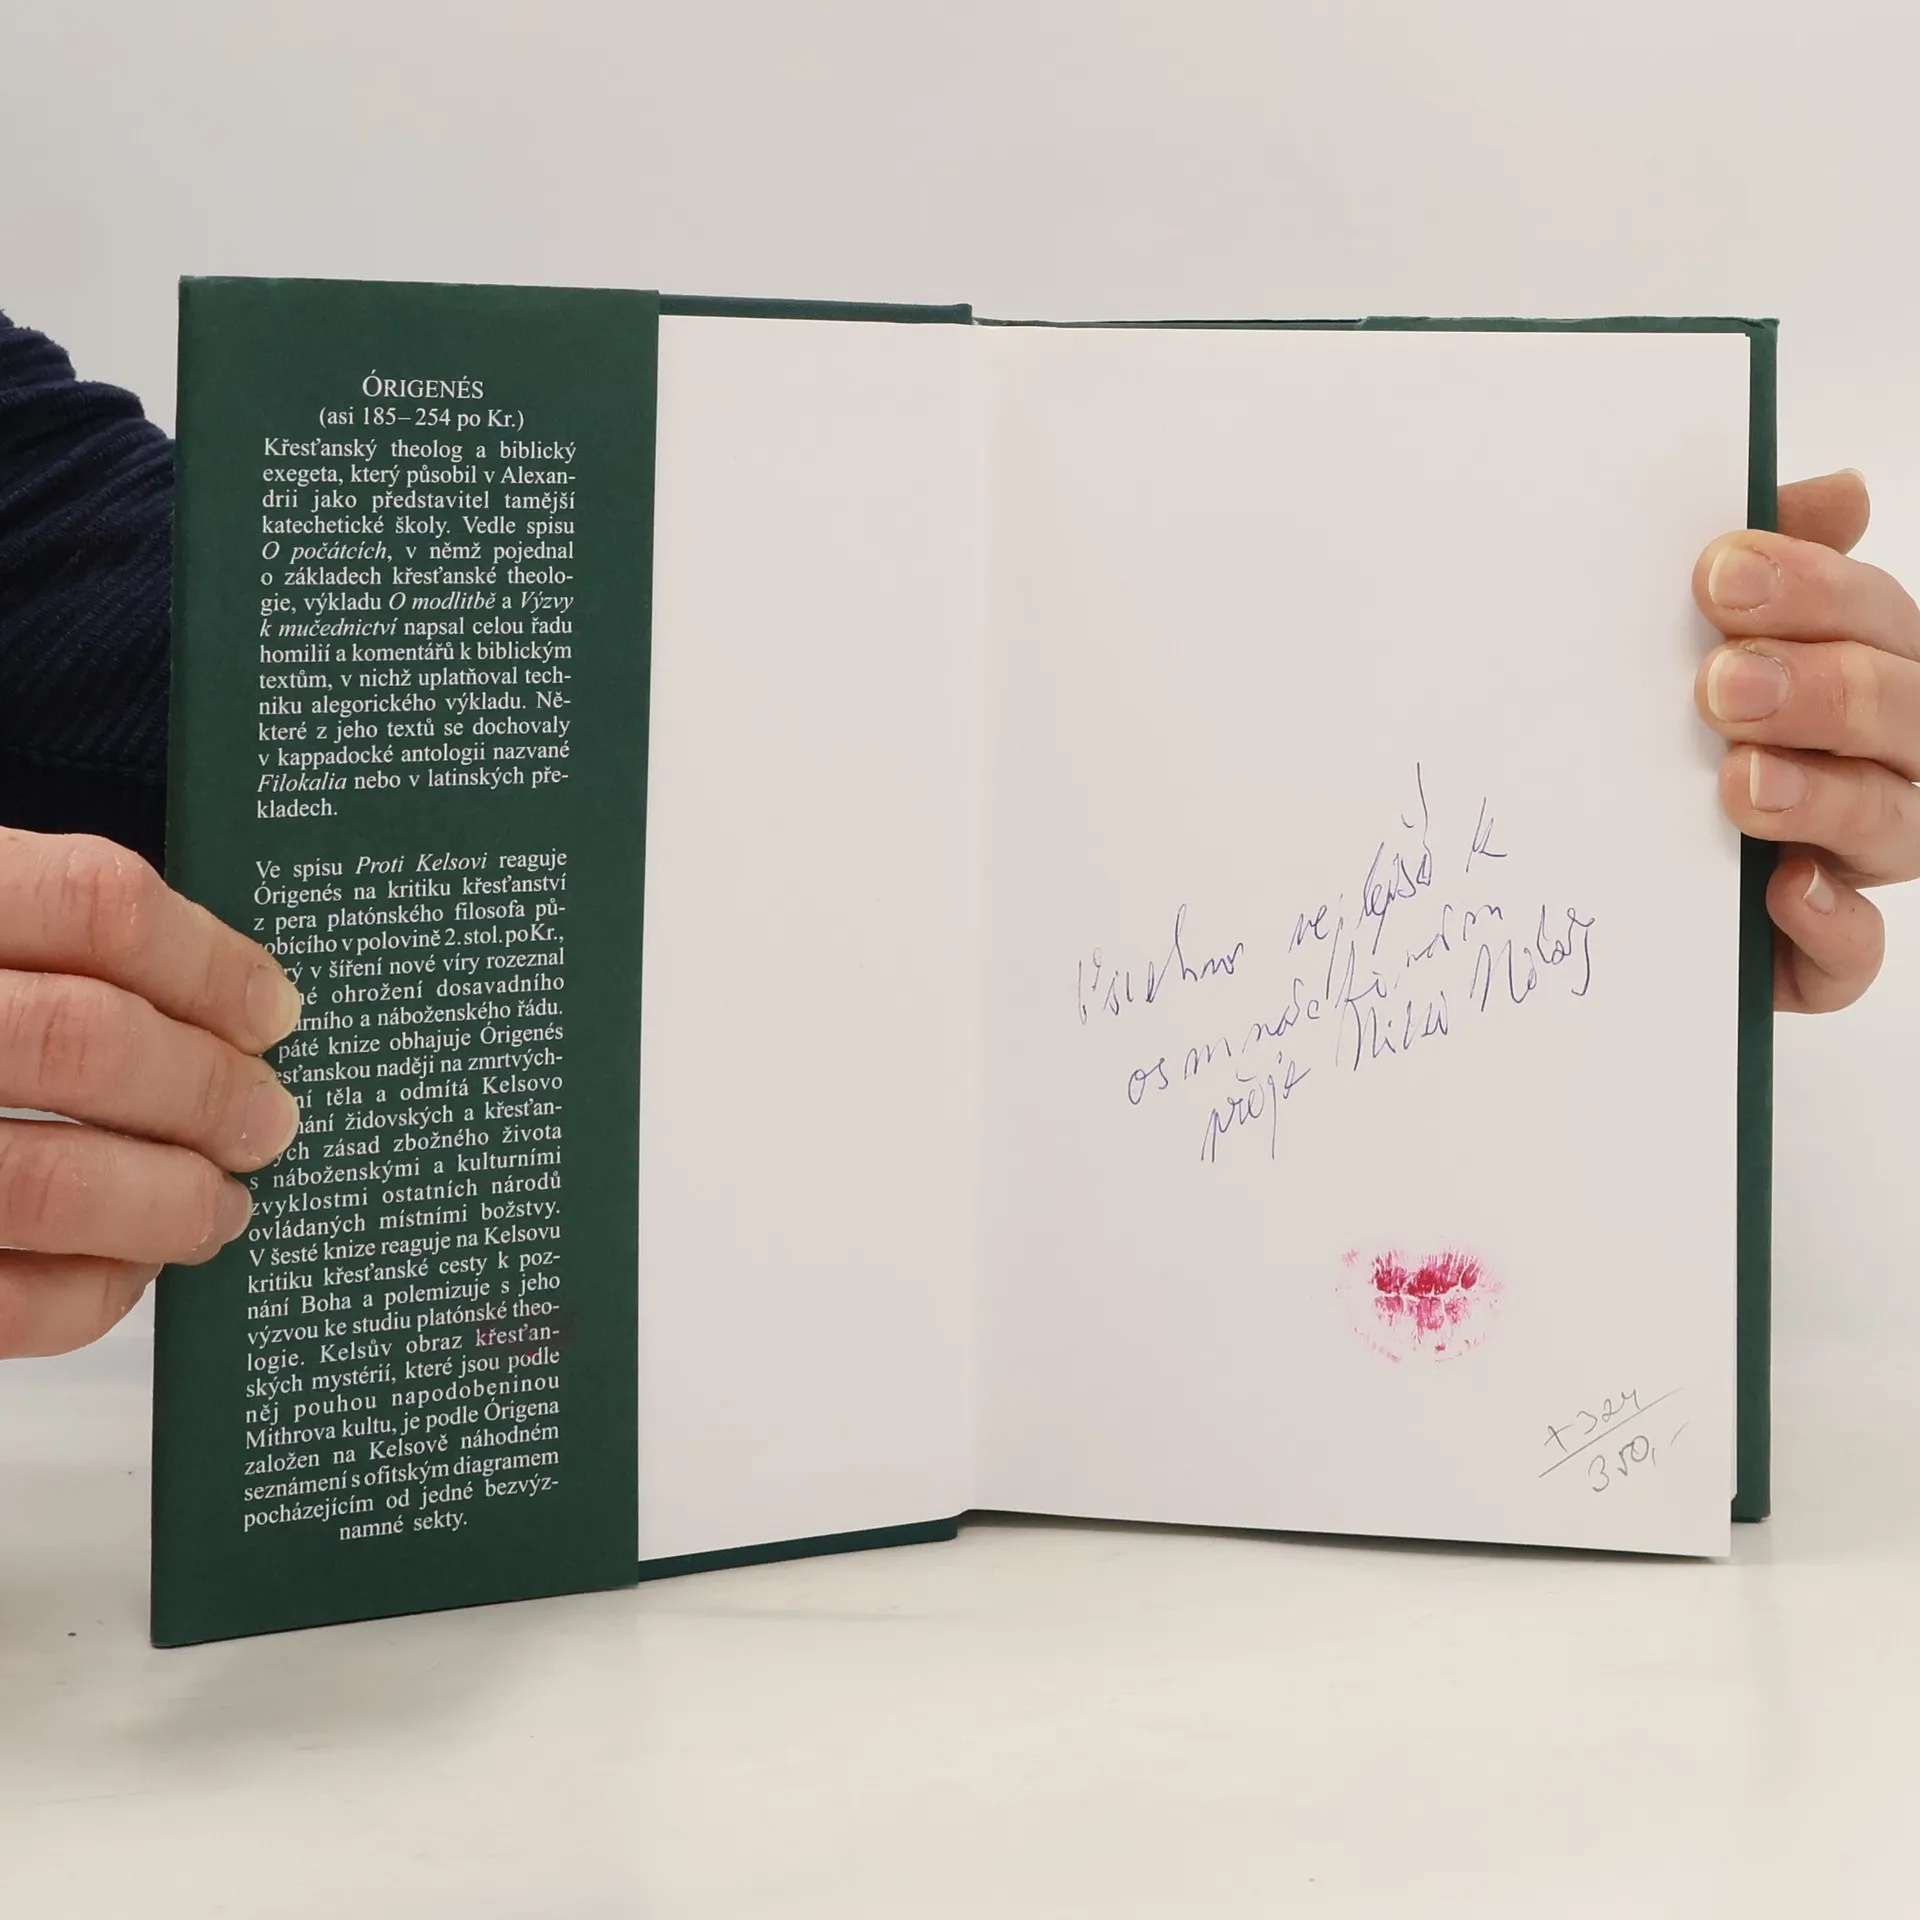 ÓRIGENÉS
(asi 185–254 po Kr.)
Křesťanský theolog a biblický
exegeta, který působil v Alexan-
drii jako představitel tamější
katechetické školy. Vedle spisu
O počátcích, v němž pojednal
o základech křesťanské theolo-
gie, výkladu O modlitbě a Výzvy
k mučednictví napsal celou řadu
homilií a komentářů k biblickým
textům, v nichž uplatňoval tech-
niku alegorického výkladu. Ně-
které z jeho textů se dochovaly
v kappadocké antologii nazvané
Filokalia nebo v latinských pře-
kladech.
Ve spisu Proti Kelsovi reaguje
Órigenés na kritiku křesťanství
z pera platónského filosofa pů-
obícího v polovině 2. stol. po Kr.,
rý v šíření nové víry rozeznal
né ohrožení dosavadního
urního a náboženského řádu.
páté knize obhajuje Órigenés
esťanskou naději na zmrtvých-
ní těla a odmítá Kelsovo
nání židovských a křesťan-
ých zásad zbožného života
s náboženskými a kulturními
zvyklostmi ostatních národů
ovládaných místními božstvy.
V šesté knize reaguje na Kelsovu
kritiku křesťanské cesty k poz-
nání Boha a polemizuje s jeho
výzvou ke studiu platónské theo-
logie. Kelsův obraz křesťan-
ských mystérií, které jsou podle
něj pouhou napodobeninou
Mithrova kultu, je podle Órigena
založen na Kelsově náhodném
seznámení s ofitským diagramem
pocházejícím od jedné bezvýz-
namné sekty.
Všechno nejlepší k
osmnáctinám
přeje
+324
350,-